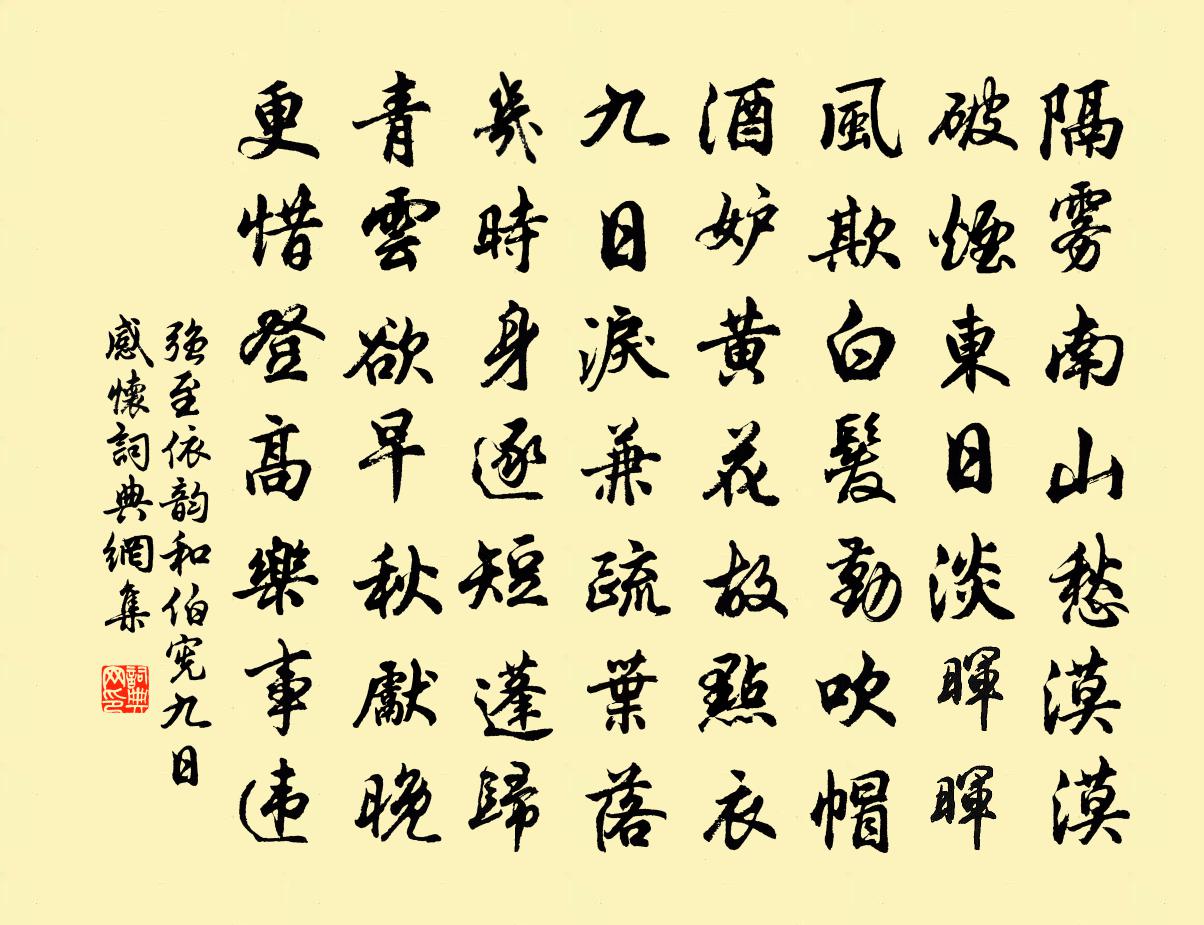 隔霧南山愁漠漠
破煙東日淡暉暉
風欺白髮勤吹帽
酒妒黃花故點衣
九日淚兼疏葉落
幾時身逐短蓬歸
青雲欲早秋獻晚
更惜登高樂事違
強至依韵和伯宪九日
感懷詞典網集
詞典
网印